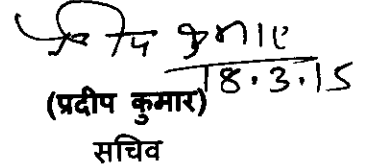 प्रदीप कुमार
18.3.15
(प्रदीप कुमार)
सचिव